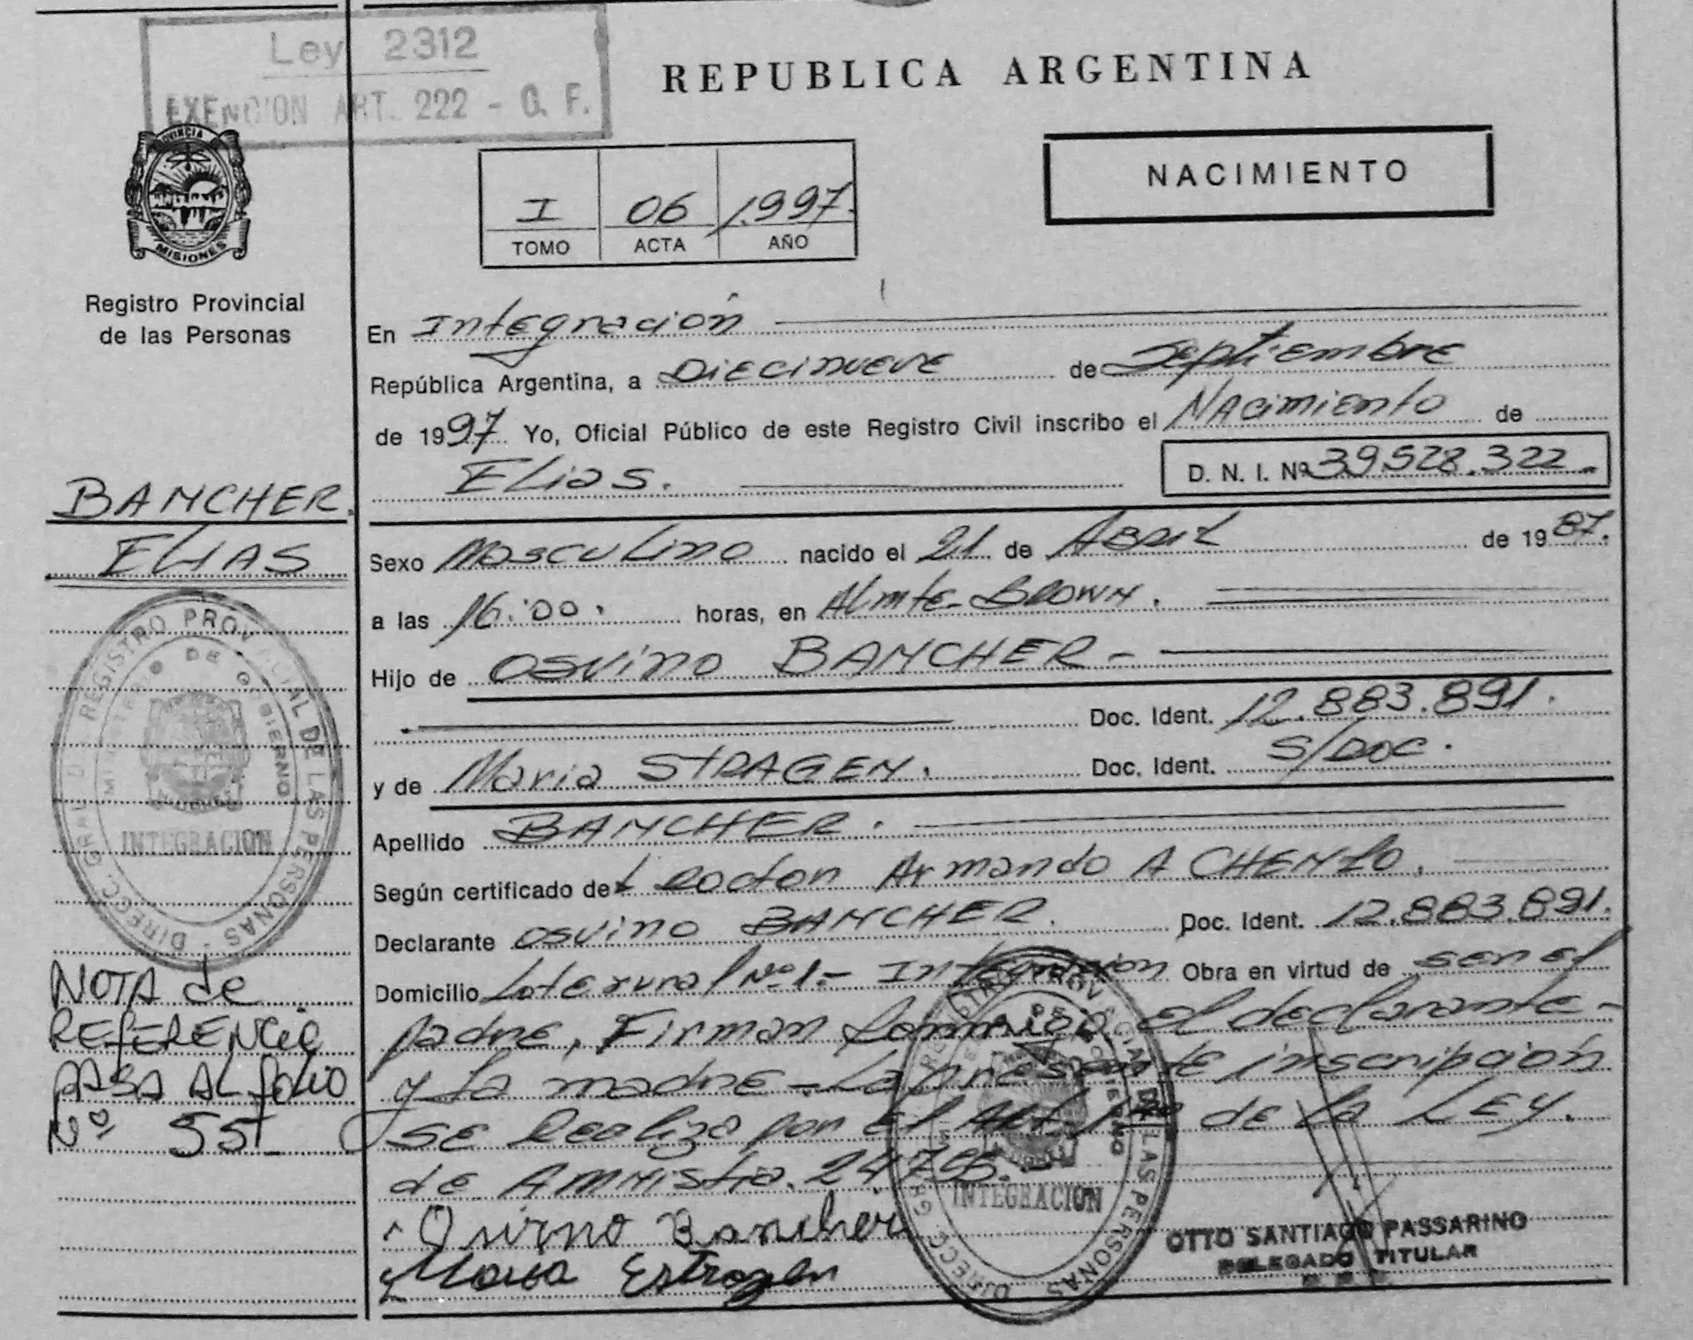 Ley 2312
EXENCION ART. 222 - C. F.
REPUBLICA ARGENTINA
NACIMIENTO
I 06 1997.
TOMO ACTA AÑO
PROVINCIA
MISIONES
Registro Provincial
de las Personas
En Integración
República Argentina, a DIECINUEVE de Septiembre
de 1997 Yo, Oficial Público de este Registro Civil inscribo el NAcimiento de
Elias. D. N. I. Nº 39.528.322.
BANCHER.
ELIAS
Sexo Masculino nacido el 21 de Abril de 1987.
a las 16:00. horas, en ALmte. BROWN.
Hijo de OSVINO BANCHER -
Doc. Ident. 12.883.891.
y de Maria STRAGEN. Doc. Ident. S/DOC.
Apellido BANCHER.
Según certificado del Doctor Armando A CHENLO.
Declarante OSVINO BANCHER. Doc. Ident. 12.883.891.
Domicilio Lote rural Nº 1.- Integración Obra en virtud de ser el
padre, Firman conmigo el declarante -
y la madre - La presente inscripción
se Realiza por el Art. de la LEY.
de AMNistia. 24.755.
Osvino Bancher
Maria Estragen
NOTA de
REFERENCIA
PASA AL folio
Nº 55
DIRECC. GRAL. DE REGISTRO PROVINCIAL DE LAS PERSONAS
MINISTERIO DE GOBIERNO
INTEGRACION
DIRECC. GRAL. DE REGISTRO PROVINCIAL DE LAS PERSONAS
INTEGRACION
OTTO SANTIAGO PASSARINO
DELEGADO TITULAR